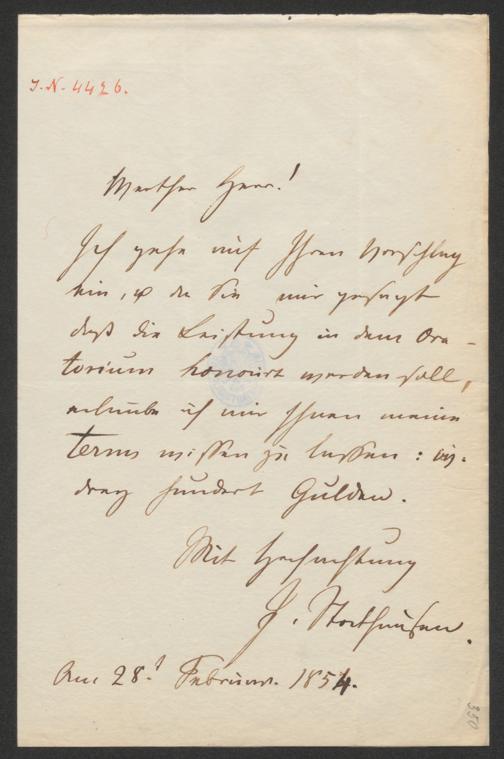 J.N. 4426.
Werther Herr!
Ich gehe auf Ihren Vorschlag
ein, & da Sie mir gesagt
daß die Leistung in dem Ora-
torium honorirt werden soll,
erlaube ich mir Ihnen meine
terms wissen zu lassen:
drey hundert Gulden.
Mit Hochachtung
J. Stockhausen.
Am 28.t Februar. 1854.
350